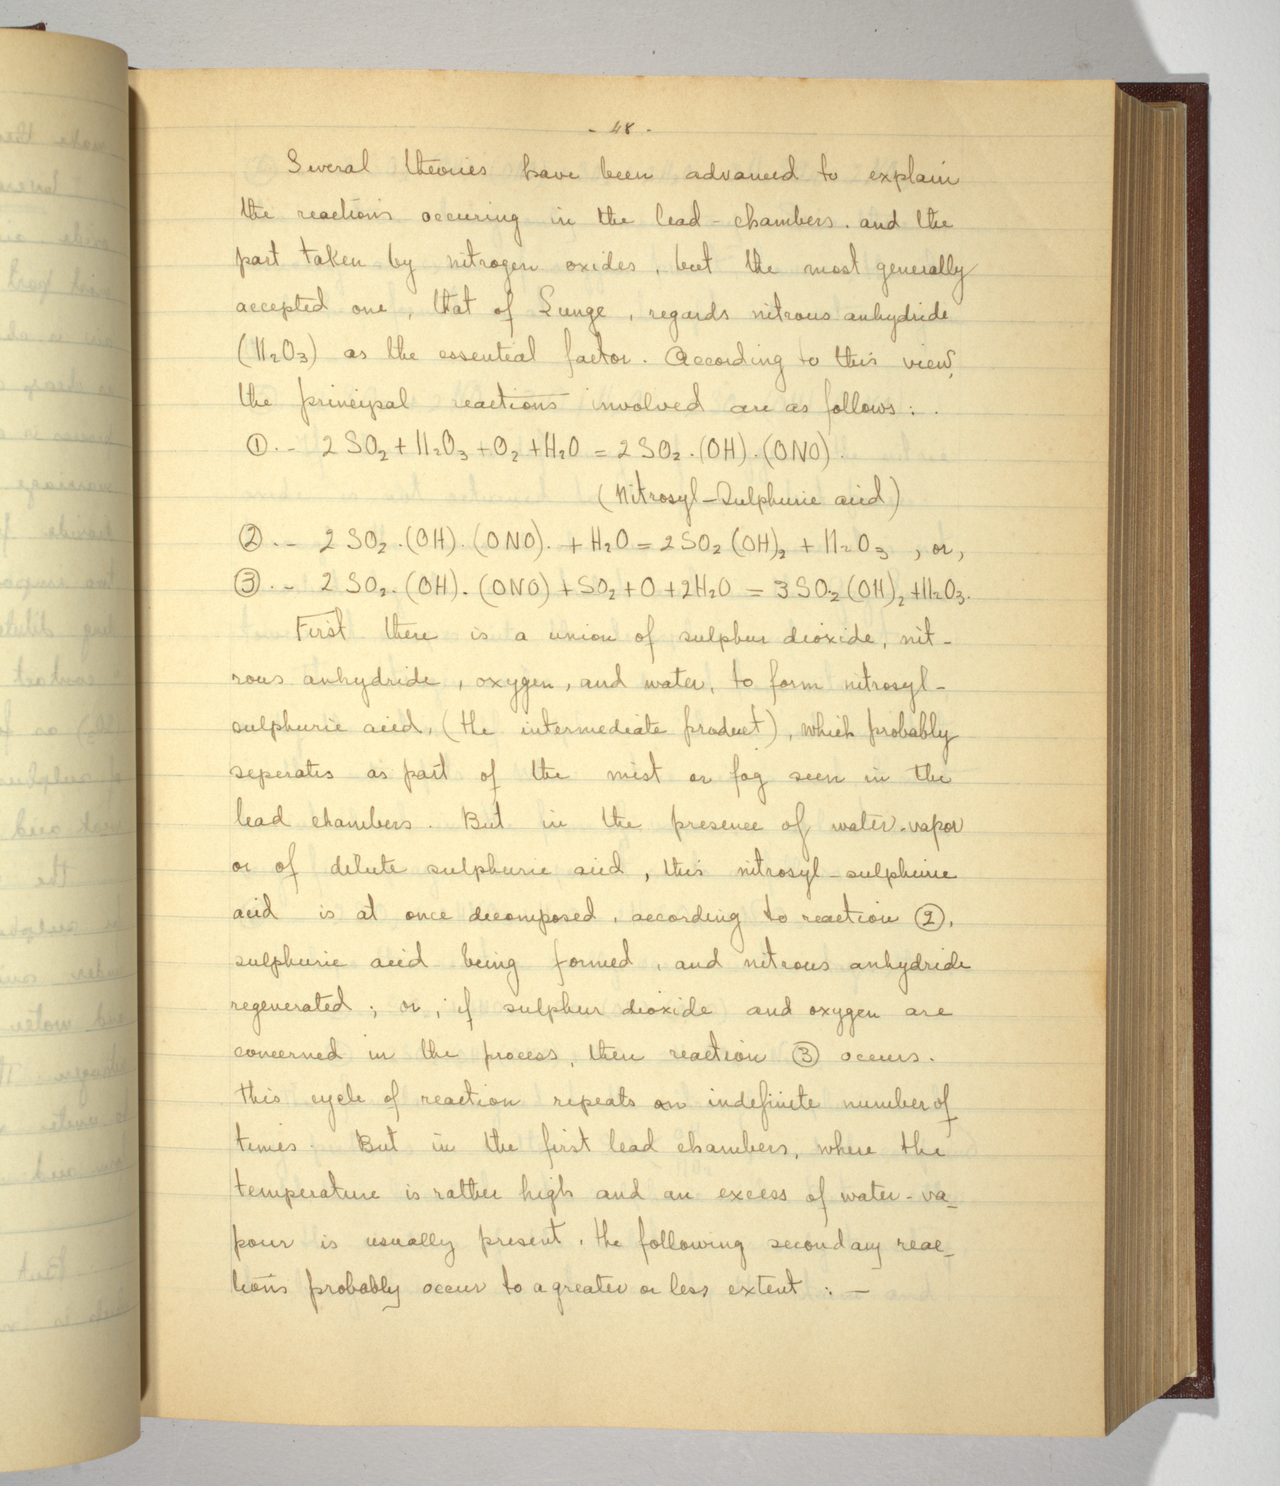 - 48 -
Several theories have been advanced to explain
the reactions occuring in the lead-chambers. and the
part taken by nitrogen oxides, but the most generally
accepted one, that of Lunge, regards nitrous anhydride
(N₂O₃) as the essential factor. According to this view,
the principal reactions involved are as follows: .
①.- 2 SO₂ + N₂O₃ + O₂ + H₂O = 2 SO₂.(OH).(ONO).
(Nitrosyl-Sulphuric acid)
②.- 2 SO₂.(OH).(ONO). + H₂O = 2 SO₂(OH)₂ + N₂O₃ , or,
③.- 2 SO₂.(OH).(ONO) + SO₂ + O + 2H₂O = 3 SO₂(OH)₂ + N₂O₃.
First there is a union of sulphur dioxide, nit-
rous anhydride, oxygen, and water, to form nitrosyl-
sulphuric acid, (the intermediate product), which probably
seperates as part of the mist or fog seen in the
lead chambers. But in the presence of water-vapor
or of dilute sulphuric acid, this nitrosyl-sulphuric
acid is at once decomposed, according to reaction ②,
sulphuric acid being formed, and nitrous anhydride
regenerated; or, if sulphur dioxide and oxygen are
concerned in the process, then reaction ③ occurs.
This cycle of reaction repeats an indefinite number of
times. But in the first lead chambers, where the
temperature is rather high and an excess of water-va-
pour is usually present, the following secondary reac-
tions probably occur to a greater or less extent : —